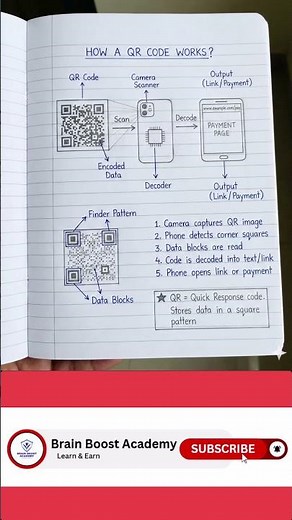 HOW A QR CODE WORKS?
QR Code
Camera
Scanner
Output
(Link/Payment)
Scan
Decode
PAYMENT
PAGE
Encoded
Data
Decoder
Output
(Link/Payment)
Finder Pattern
Data Blocks
1. Camera captures QR image
2. Phone detects corner squares
3. Data blocks are read
4. Code is decoded into text/link
5. Phone opens link or payment
★ QR = Quick Response code.
Stores data in a square
pattern
BRAIN BOOST
ACADEMY
Brain Boost Academy
Learn & Earn
SUBSCRIBE